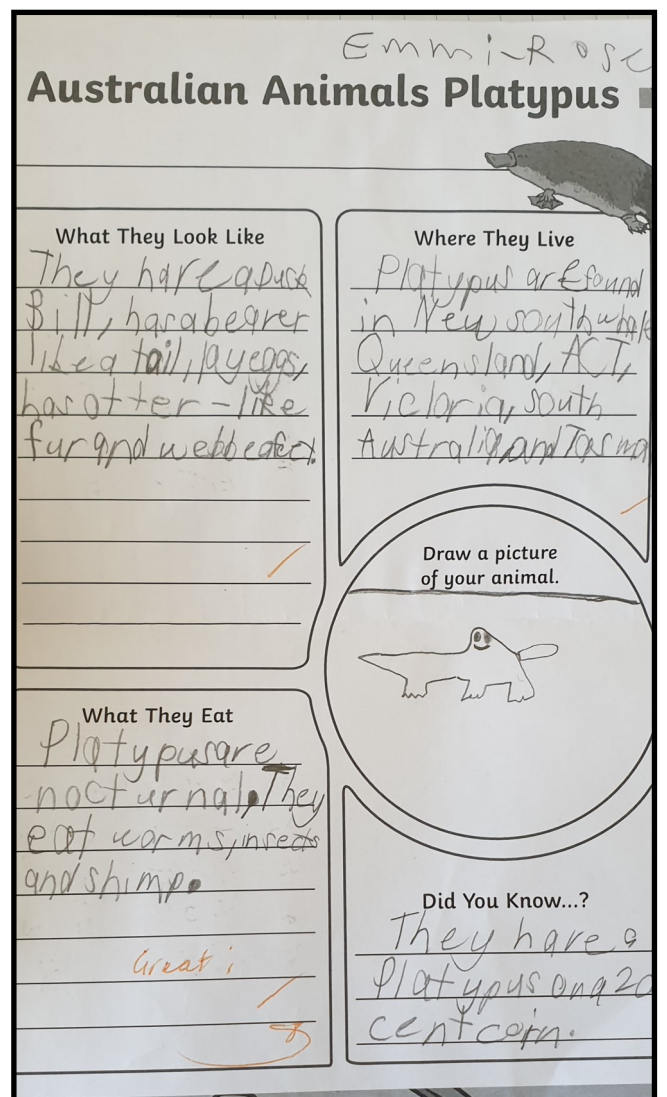 Emmi-Rose
Australian Animals Platypus
What They Look Like
They have a Duck
Bill, has a beaver
like a tail, lay eggs,
has otter-like
fur and webbed feet.
Where They Live
Platypus are found
in New south whale
Queensland, ACT,
Victoria, south
Australia, and Tasma
Draw a picture
of your animal.
What They Eat
Platypus are
nocturnal. They
eat worms, insects
and shimp.
Great!
Did You Know...?
They have a
Platypus on a 20
cent coin.